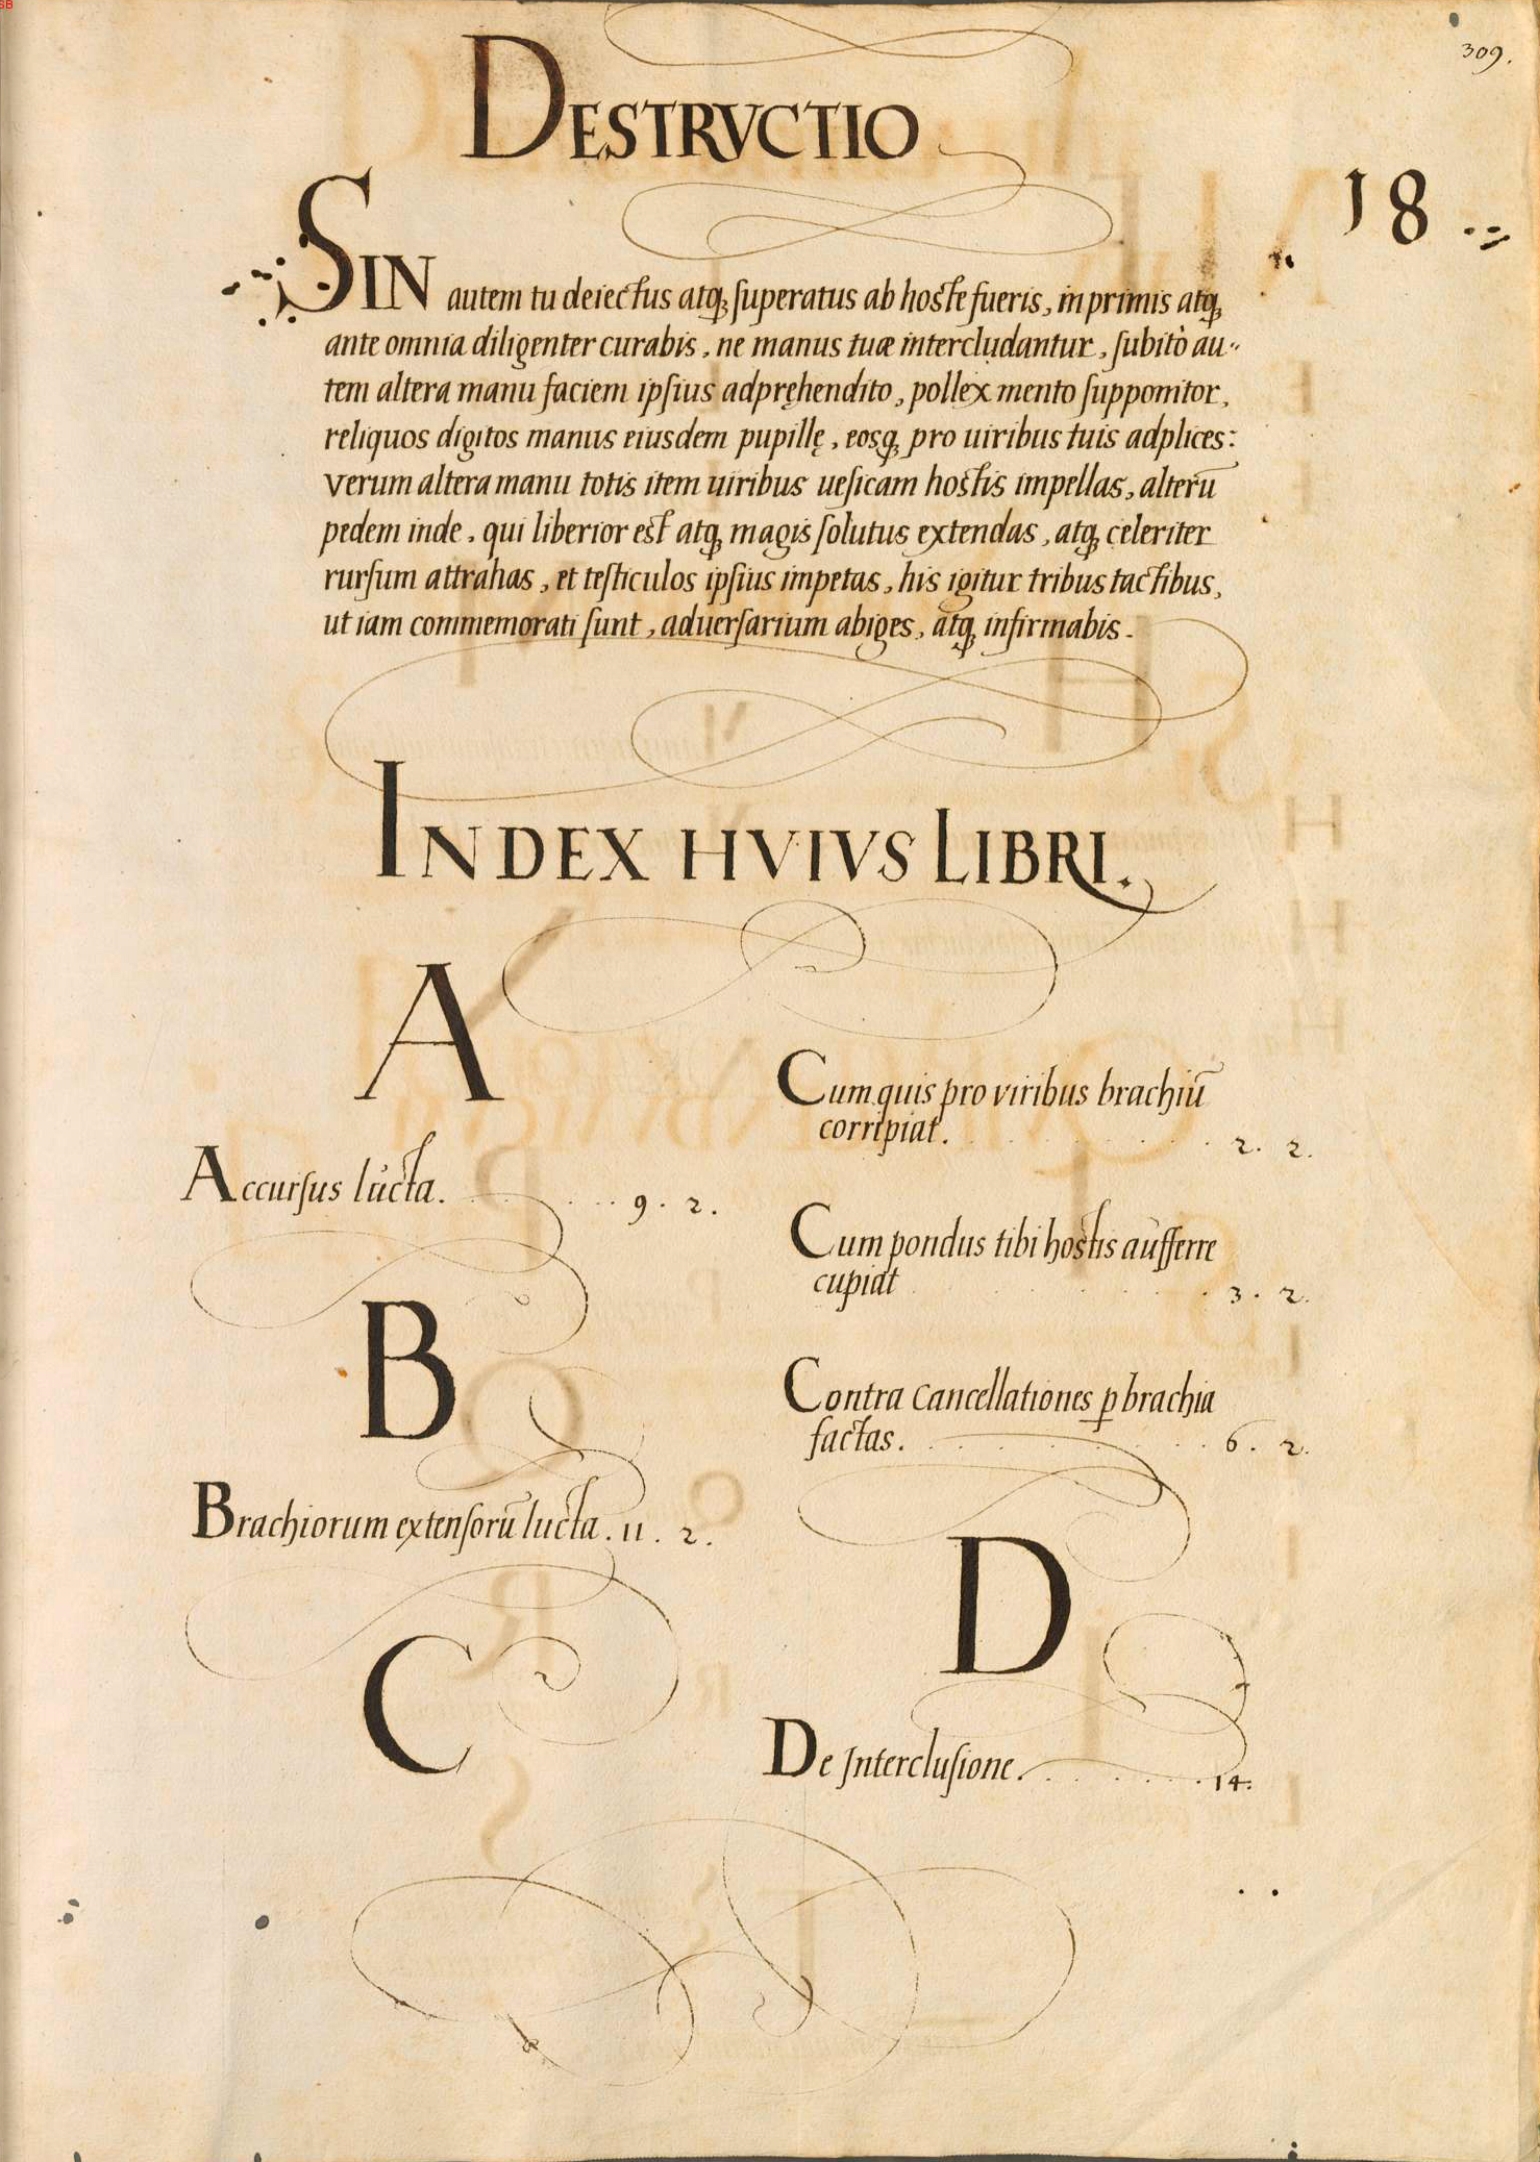 309.
DESTRVCTIO
18
SIN autem tu deiectus atq; superatus ab hoste fueris, inprimis atq;
ante omnia diligenter curabis, ne manus tuæ intercludantur, subitò au-
tem altera manu faciem ipsius adpręhendito, pollex mento supponitor,
reliquos digitos manus eiusdem pupillę, eosq; pro uiribus tuis adplices:
Verum altera manu totis item uiribus uesicam hostis impellas, alterū
pedem inde, qui liberior est atq; magis solutus extendas, atq; celeriter
rursum attrahas, et testiculos ipsius impetas, his igitur tribus tactibus,
ut iam commemorati sunt, aduersarium abiges, atq; infirmabis.
INDEX HVIVS LIBRI.
A
Accursus lucta. 9. 2.
B
Brachiorum extensorū lucta. 11. 2.
C
Cum quis pro viribus brachiū
corripiat. 2. 2.
Cum pondus tibi hostis aufferre
cupiat 3. 2.
Contra cancellationes ꝑ brachia
factas. 6. 2.
D
De Interclusione. 14.